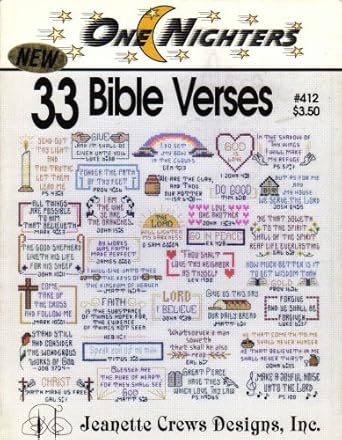 ONE NIGHTERS
NEW
33 Bible Verses
#412
$3.50
SEND OUT
THY LIGHT AND
AND
THY TRUTH
LET THEM
LEAD ME
GIVE
AND IT SHALL BE
GIVEN UNTO YOU
LUKE 6:38
I DO SET
MY BOW
IN THE CLOUDS
GEN 9:13
GOD
IS
LOVE
IN THE SHADOW OF
THY WINGS
I WILL MAKE
MY REFUGE
PS 57:1
PONDER THE PATH
OF THY FEET
PROV 4:26
WE ARE THE CLAY,
AND THOU
OUR POTTER
DO GOOD
AS FOR ME
AND MY HOUSE
WE SERVE THE LORD
ALL THINGS
ARE POSSIBLE
TO HIM
THAT
BELIEVETH
MARK 9:23
I AM
THE VINE
YE ARE
THE BRANCHES
JOHN 15:5
THE LORD
WILL LIGHTEN
MY DARKNESS
2 SAM 22:29
LOVE
ONE ANOTHER
I JOHN 4:7
GO IN PEACE
HE THAT SOWETH
TO THE SPIRIT
SHALL OF THE SPIRIT
REAP LIFE EVERLASTING
GAL 6:8
THE GOOD SHEPHERD
GIVETH HIS LIFE
FOR HIS SHEEP
JOHN 10:11
BY WORKS
WAS FAITH
MADE PERFECT
JAMES 2:22
THOU SHALT
LOVE THY NEIGHBOR
AS THYSELF
HOW MUCH BETTER IS IT
TO GET WISDOM THAN
I WILL GIVE UNTO THEE
THE KEYS OF THE
KINGDOM OF HEAVEN
COME,
TAKE UP
THE CROSS
AND FOLLOW ME
MARK 10:21
FAITH
IS THE SUBSTANCE
OF THINGS HOPED FOR,
THE EVIDENCE
OF THINGS NOT SEEN
HEB 11:1
LORD
I BELIEVE
JOHN 9:38
GIVE US THIS DAY
OUR DAILY BREAD
FORGIVE
AND YE SHALL BE
FORGIVEN
LUKE 6:37
STAND STILL
AND CONSIDER
THE WONDROUS
WORKS OF GOD
JOB 37:14
Speak evil of no man
TITUS 3:2
Whatsoever a man
soweth
that shall he also
reap
GAL 6:7
HE THAT COMETH TO ME
SHALL NEVER HUNGER
HE THAT BELIEVETH IN ME
SHALL NEVER THIRST
JOHN 6:35
CHRIST
HATH MADE US FREE
GAL 5:1
BLESSED ARE
THE PURE OF HEART
FOR THEY SHALL SEE
GOD
GREAT PEACE
HAVE THEY
WHICH LOVE THY LAW
MAKE A JOYFUL NOISE
UNTO THE LORD
Jeanette Crews Designs, Inc.